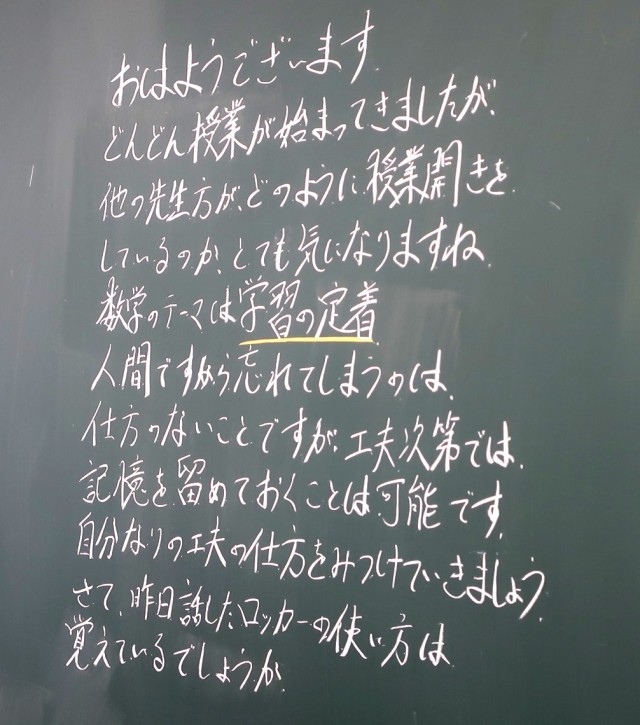 おはようございます.
どんどん授業が始まってきましたが、
他の先生方が、どのように授業開きを
しているのか、とても気になりますね.
数学のテーマは学習の定着
人間ですから忘れてしまうのは、
仕方のないことですが、工夫次第では、
記憶を留めておくことは可能です.
自分なりの工夫の仕方をみつけていきましょう.
さて、昨日話したロッカーの使い方は
覚えているでしょうか.